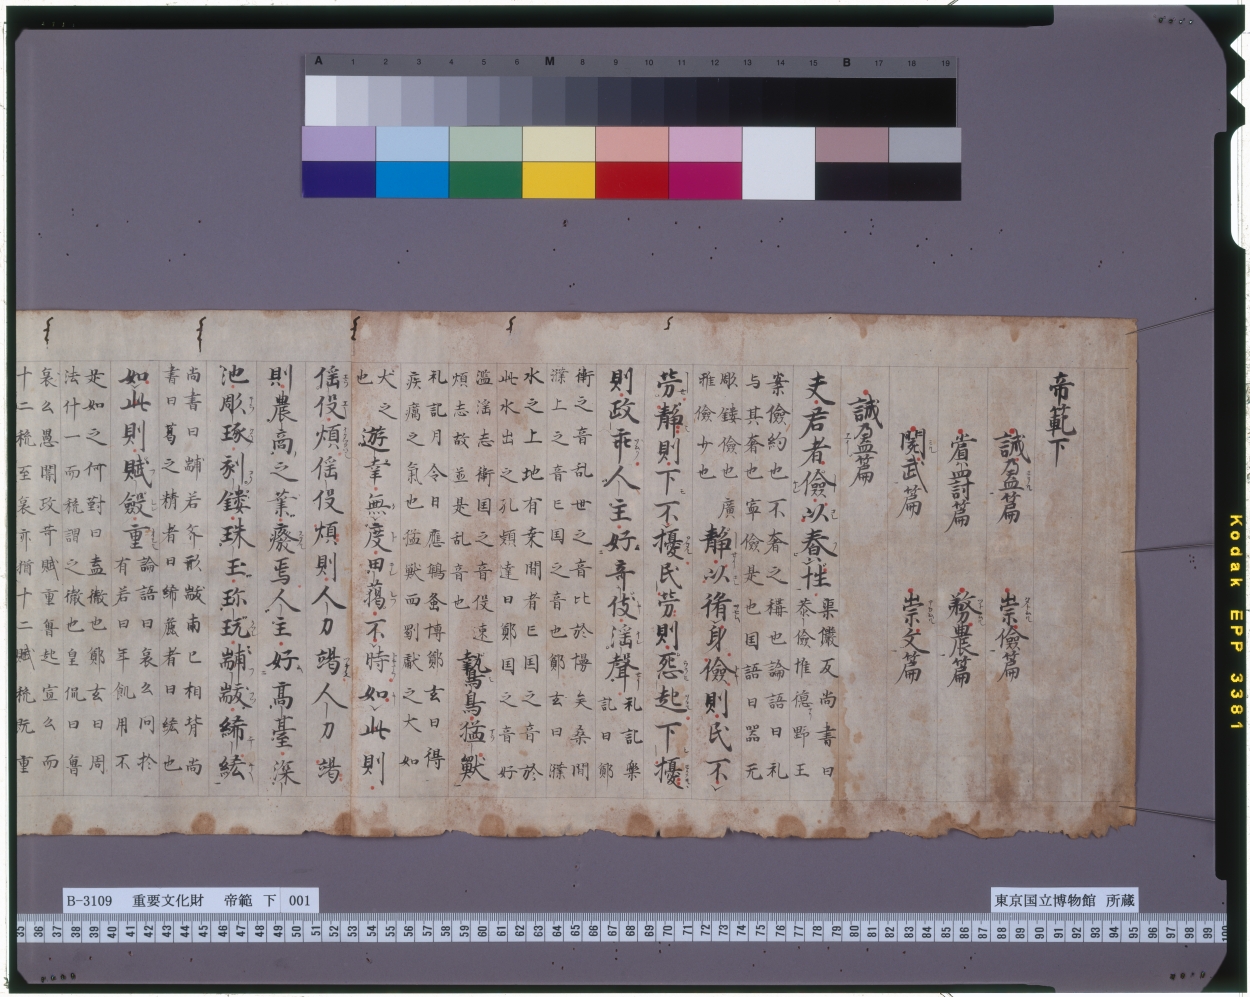 A 1 2 3 4 5 6 M 8 9 10 11 12 13 14 15 B 17 18 19
帝範下
誡盈篇 崇儉篇
賞罰篇 務農篇
閱武篇 崇文篇
誡盈篇
夫君者儉以養性
案儉約也不奢之稱也論語曰礼
与其奢也寧儉是也国語曰器无
彫鏤儉也廣
雅儉少也
静以脩身儉則民不
労静則下不擾民労則怨起下擾
則政乖人主好奇伎滛聲
礼記樂
記曰鄭
衛之音乱世之音比於慢矣桑間
濮上之音亡国之音也鄭玄曰濮
水之上地有桒間者亡国之音於
此水出之孔頴達曰鄭国之音好
滥滛志衛国之音促速
煩志故並是乱音也
鷙鳥猛獸
礼記月令曰鷹隼蚤博鄭玄曰得
疾癘之氣也猛獸而
犬之
也
遊幸無度田獦不時如此則
徭伇煩徭伇煩則人力竭人力竭
則農高之業癈焉人主好髙臺深
池彫琢刻鏤珠玉珎玩黼黻絺綌
尚書曰黼若斧形黻両已相背尚
書曰葛之精者曰絺麁者曰綌也
如此則賦斂重
論語曰哀公问扵
有若曰年飢用不
足如之何對曰盍徹也鄭玄曰周
法什一而税謂之徹也皇侃曰魯
哀公愚闇政苛賦重魯起宣公而
十二税至哀亦猶十二賦税既重
B-3109 重要文化財 帝範 下 001
東京国立博物館 所蔵
35 36 37 38 39 40 41 42 43 44 45 46 47 48 49 50 51 52 53 54 55 56 57 58 59 60 61 62 63 64 65 66 67 68 69 70 71 72 73 74 75 76 77 78 79 80 81 82 83 84 85 86 87 88 89 90 91 92 93 94 95 96 97 98 99 100
Kodak EPP 3381